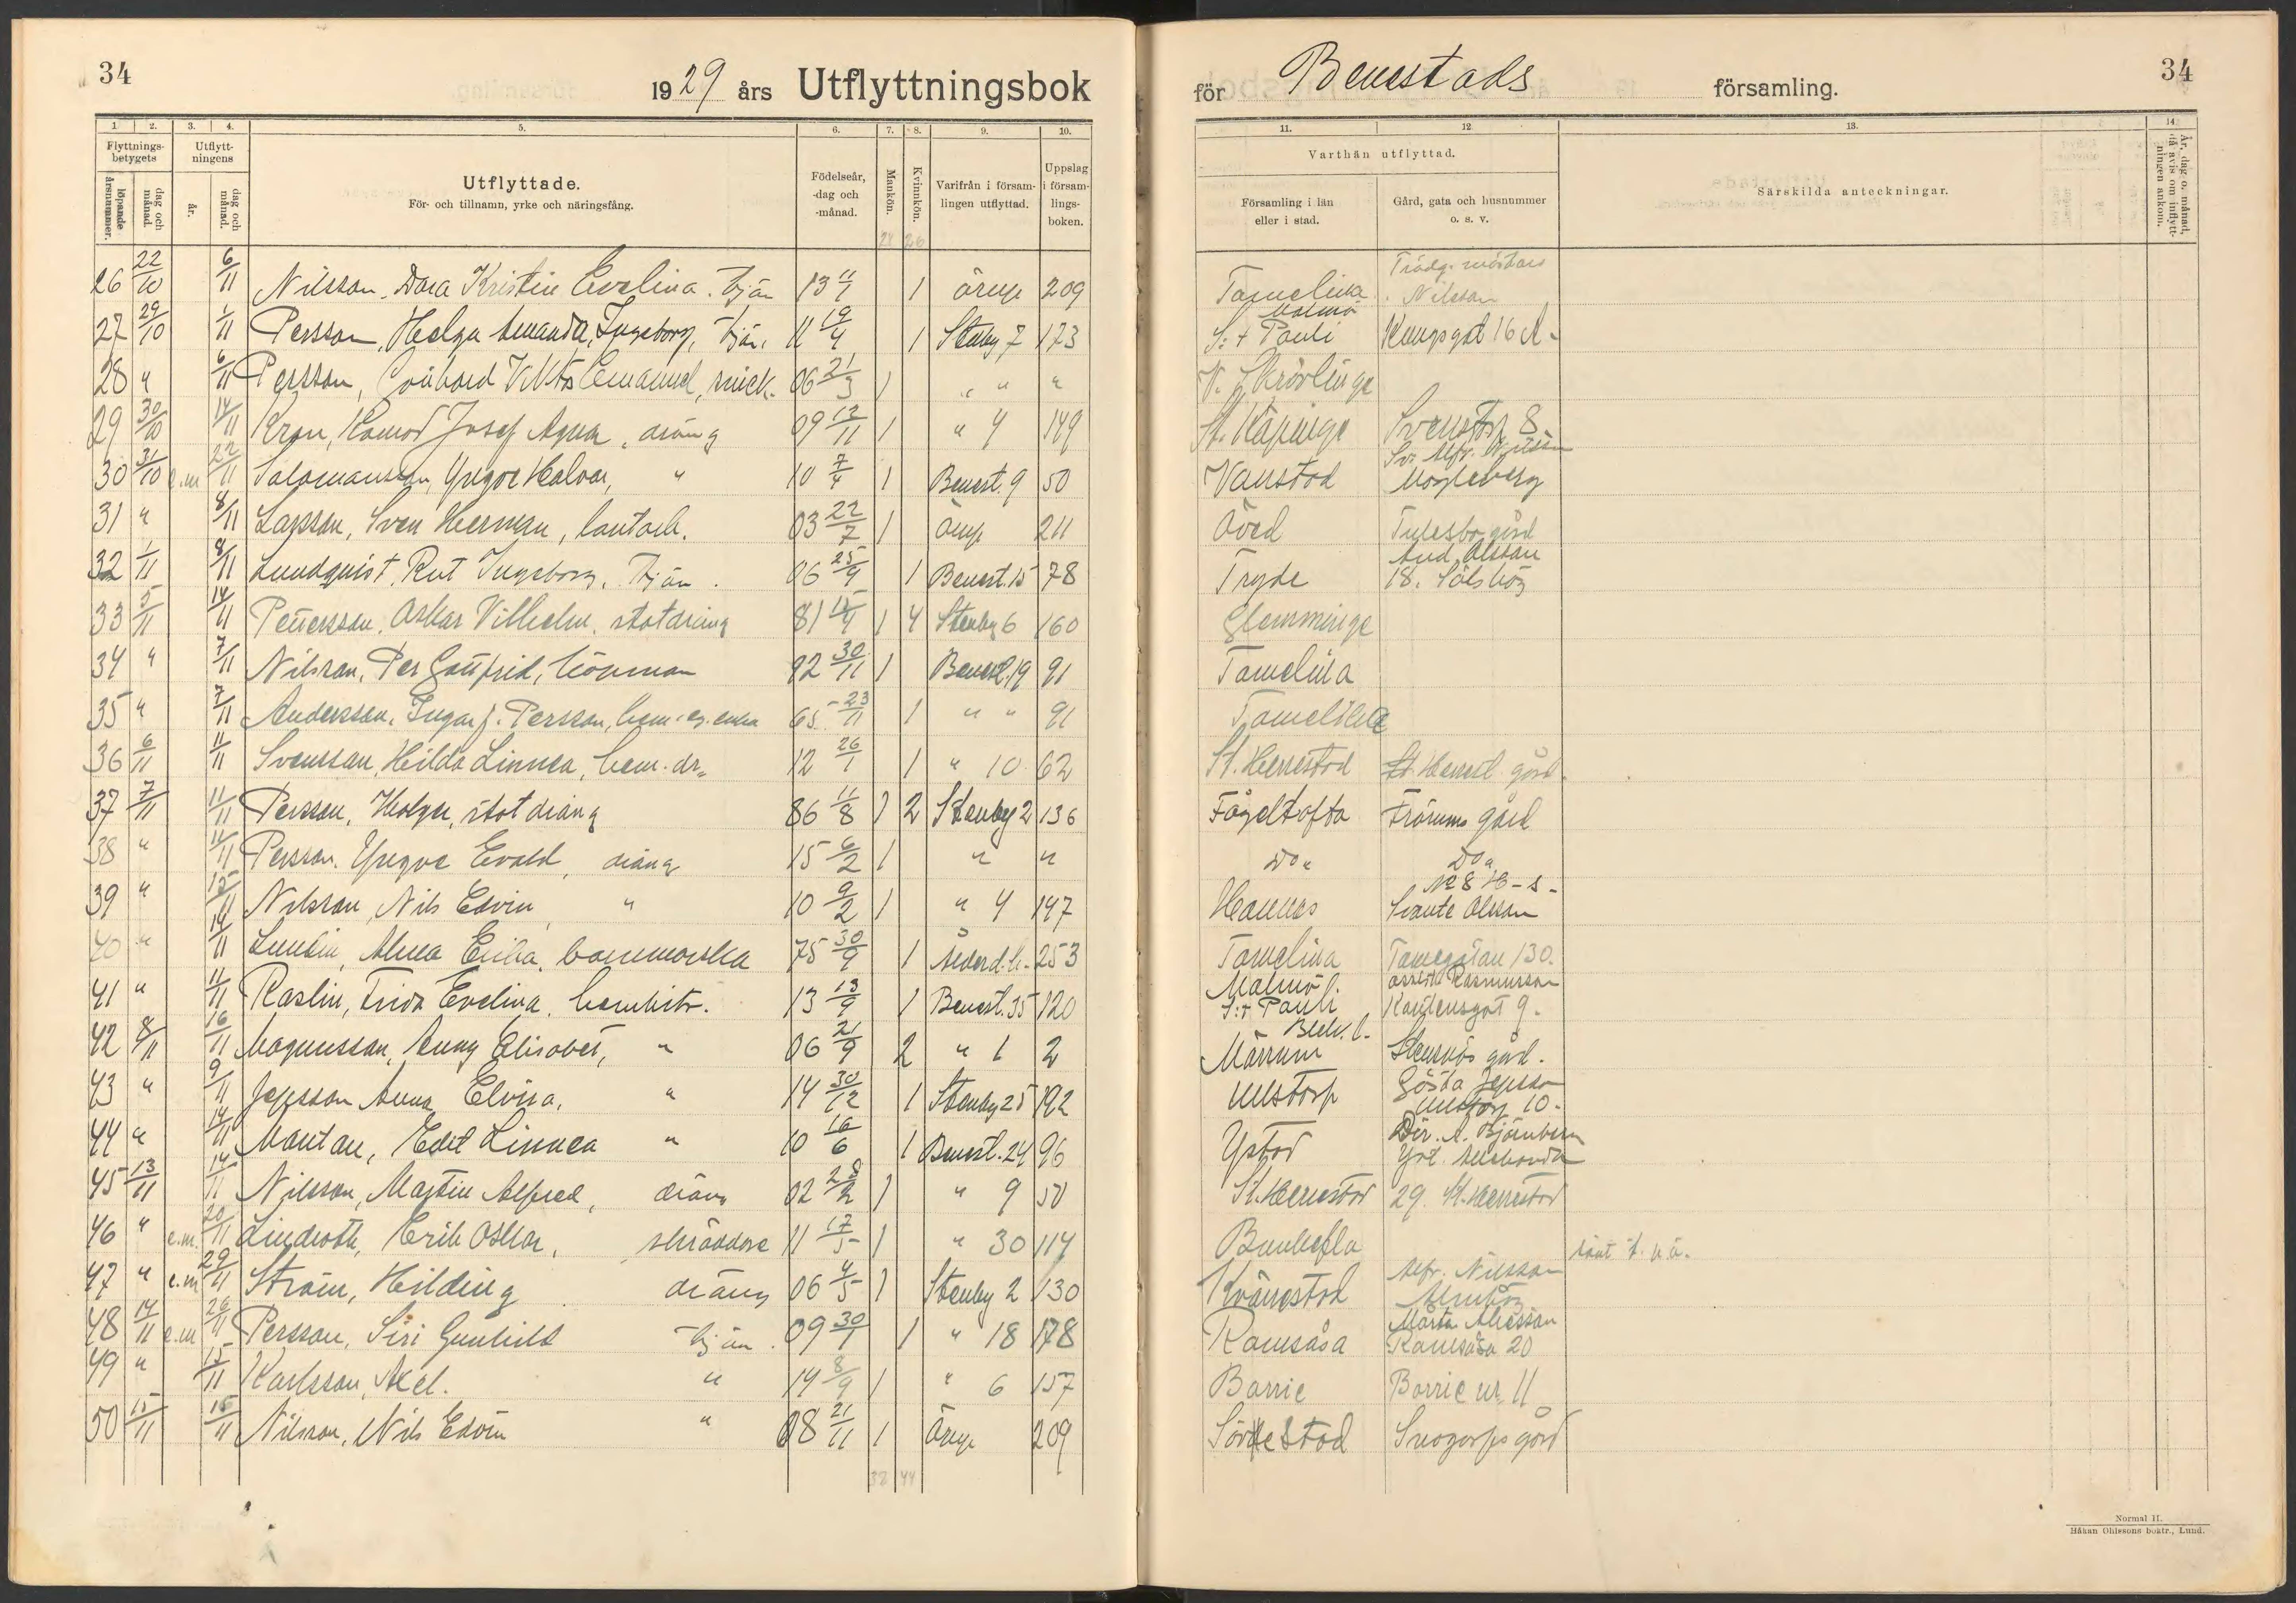 34
1929 års Utflyttningsbok
1. 2. 3. 4. 5. 6. 7. 8. 9. 10.
Flyttnings-betygets
löpande årsnummer.
dag och månad.
Utflytt-ningens
år.
dag och månad.
Utflyttade.
För- och tillnamn, yrke och näringsfång.
Födelseår, -dag och -månad.
Mankön.
Kvinnkön.
Varifrån i försam-lingen utflyttad.
Uppslag i försam-lings-boken.
24 26
26 22/10 6/11 Nilsson, Dora Kristin Evelina. tjän 13 11/1 1 Örup 209
27 29/10 1/11 Persson, Helga Amanda Ingeborg, tjän. 11 19/4 1 Stenby 7 173
28 " 6/11 Persson, Emanuel, snick. 06 21/3 1 " " "
29 30/10 14/11 Kron, Konrad Josef Agna, dräng 09 12/11 1 " 4 149
30 31/10 e.m 22/11 Salomonsson, Yngve Halvar, " 10 7/4 1 Benest. 9 50
31 " 8/11 Larsson, Sven Herman, lantarb. 03 22/7 1 Örup 211
32 1/11 8/11 Lundquist, Rut Ingeborg, tjän. 06 25/9 1 Benest. 15 78
33 5/11 14/11 Pettersson, Oskar Vilhelm, statdräng 81 15/4 1 4 Stenby 6 160
34 " 7/11 Nilsson, Per Gottfrid, köpman 92 30/11 1 Benest. 19 91
35 " 7/11 Andersson, Inga f. Persson, hem. eg. enka 65 23/11 1 " " 91
36 6/11 11/11 Svensson, Hilda Linnea, hem. dr. 12 26/1 1 " 10 62
37 7/11 11/11 Persson, Holger, statdräng 86 11/8 1 2 Stenby 2 136
38 " 11/11 Persson, Yngve Evald, dräng 15 6/2 1 " "
39 " 15/11 Nilsson, Nils Edvin, " 10 9/2 1 " 4 147
40 " 14/11 Lundin, Alma Erika, barnmorska 75 30/9 1 Ålderd.h. 253
41 " 11/11 Raslin, Frida Evelina, hembitr. 13 13/9 1 Benest. 35 120
42 8/11 16/11 Magnusson, Anny Elisabet, " 06 21/9 2 " 1 2
43 " 9/11 Jeppsson Anna Elvira, " 14 30/12 1 Stenby 25 192
44 " 14/11 Montan, Edit Linnea " 10 16/6 1 Benest. 24 96
45 13/11 14/11 Nilsson, Martin Alfred, dräng 02 28/2 1 " 9 50
46 " e.m. 20/11 Linderoth, Erik Oskar, skräddare 11 17/5 1 " 30 114
47 " e.m 29/11 Ström, Hilding dräng 06 4/5 1 Stenby 2 130
48 14/11 e.m 26/11 Persson, Siri Gunhild tjän. 09 30/1 1 " 18 178
49 " 15/11 Karlsson, Axel. " 14 8/9 1 " 6 157
50 15/11 15/11 Nilsson, Nils Edvin " 08 21/11 1 Örup 209
32 44
34
för Benestads församling.
11. 12. 13. 14.
Varthän utflyttad.
Församling i län eller i stad.
Gård, gata och husnummer o. s. v.
Särskilda anteckningar.
År, dag o. månad, då avis om inflytt-ningen ankom.
Tomelilla Trädg. mästare Nilsson
Malmö
S:t Pauli Kungsgat 16 A.
V. Skrävlinge
St. Köpinge Svenstorp 8
Vanstad Mogleberg
Öved Tulesbo gård
Tryde And. Olsson
18.
Glemminge
Tomelilla
Tomelilla
St. Herrestad St. Herrest. gård
Fågeltofta Frörums gård
Do " Do "
No 8 H-s.
Hannas Svante Olsson
Tomelilla Tomegatan 130.
Malmö Rasmusson
S:t Pauli 9.
Blek. l.
Mörrum gård.
Ullstorp Gösta Jepsson
Ullstorp 10.
Ystad Dir. A. Björnberg
St. Herrestad 29. St. Herrestad
Bunkeflo sänt f. u.ä.
Kverrestad Alfr. Nilsson
Ramsåsa Märta
Ramsåsa 20
Borrie Borrie nr. 11
Sövestad Snogarps gård
Normal II.
Håkan Ohlssons boktr., Lund.